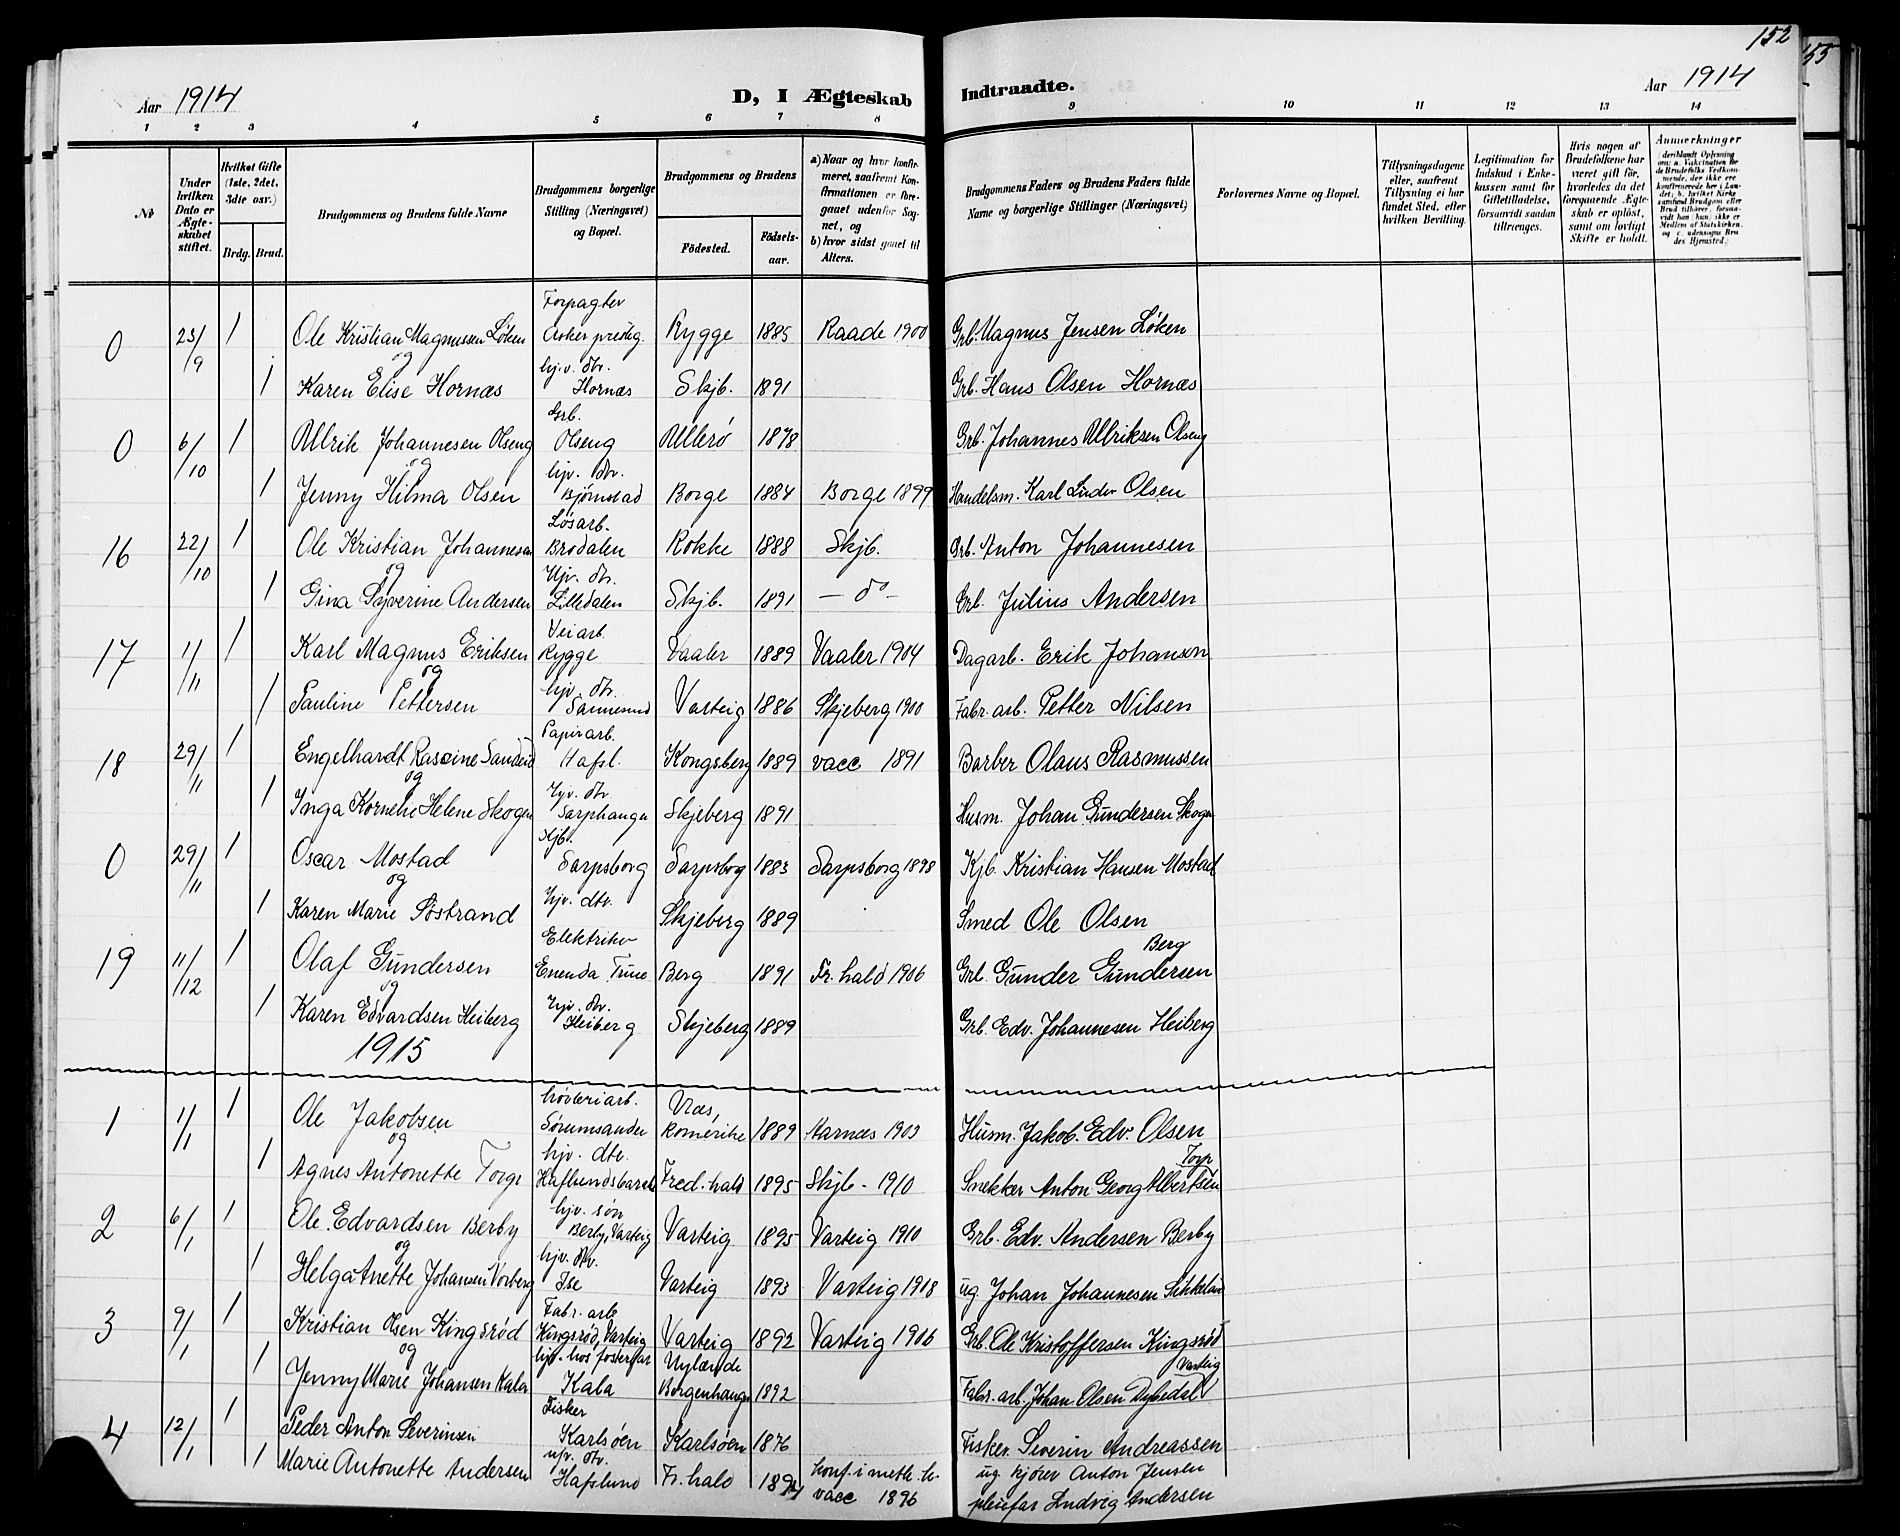 152
155
Aar 1914
D, I Ægteskab Indtraadte.
Aar 1914
1 2 3 4 5 6 7 8 9 10 11 12 13 14
No
Under hvilken Dato er Ægteskabet stiftet.
Hvilket Gifte (1ste, 2det, 3die osv.)
Brdg. Brud.
Brudgommens og Brudens fulde Navne
Brudgommens borgerlige Stilling (Næringsvei) og Bopæl.
Brudgommens og Brudens
Födested.
Födsels-aar.
a) Naar og hvor konfirmeret, saafremt Konfirmationen er foregaaet udenfor Sognet, og
b) hvor sidst gaaet til Alters.
Brudgommens Faders og Brudens Faders fulde Navne og borgerlige Stillinger (Næringsvei)
Forlovernes Navne og Bopæl.
Tillysningsdagene eller, saafremt Tillysning ei har fundet Sted, efter hvilken Bevilling.
Legitimation for Indskud i Enkekassen samt for Giftetilladelse, forsaavidt saadan tiltrænges.
Hvis nogen af Brudefolkene har været gift før, hvorledes da det foregaaende Ægteskab er opløst, samt om lovligt Skifte er holdt.
Anmerkninger
(deriblandt Oplysning om: a. Vakcination for de Brudefolks Vedkommende, der ikke ere konfirmerede her i Landet, b. hvilket Kirkesamfund Brudgom eller Brud tilhører, forsaavidt han (hun) ikke er Medlem af Statskirken, og c. udensogns Brudes Hjemsted.)
Forpagter
0 25/9 1 Ole Kristian Magnussen Løken Asker prestg. Rygge 1885 Raade 1900 Grb. Magnus Jensen Løken
og hjv. dtr.
1 Karen Elise Hornæs Hornæs Skjb. 1891 Grb. Hans Olsen Hornæs
Grb.
0 6/10 1 Ullrik Johannesen Olseng Olseng Ullerö 1878 Grb. Johannes Ullriksen Olseng
og hjv. dtr.
1 Jenny Hilma Olsen Bjørnstad Borge 1884 Borge 1899 Handelsm. Karl Luder Olsen
Løsarb.
16 22/10 1 Ole Kristian Johannesen Brodalen Rokke 1888 Skjb. Grb. Anton Johannesen
og Hjv. dtr.
1 Gina Syverine Andersen Lilledalen Skjb. 1891 — do — Grb. Julius Andersen
Veiarb.
17 1/11 1 Karl Magnus Eriksen Rygge Vaaler 1889 Vaaler 1904 Dagarb. Erik Johanson
og hjv. dtr.
1 Pauline Pettersen Sannesund Varteig 1886 Skjeberg 1900 Fabr. arb. Petter Nilsen
Papirarb.
18 29/11 1 Engelhardt Hafsl. Kongsberg 1889 vacc 1891 Barber Olaus Rasmussen
og Hjv. dtr
1 Inga Kornelie Helene Skogen Skjeberg 1891 Husm. Johan Gundersen Skogen
0 29/11 1 Oscar Mostad Sarpsborg Sarpsborg 1883 Sarpsborg 1898 Kjb. Kristian Hansen Mostad
og Hjv. dtr.
1 Karen Marie Söstrand Skjeberg 1889 Smed Ole Olsen
Elektriker Berg
19 11/12 1 Olaf Gundersen Berg 1891 Fr. hald 1906 Grb. Gunder Gundersen
og Hjv. dtr.
1 Karen Edvardsen Heiberg Heiberg Skjeberg 1889 Grb. Edv. Johannesen Heiberg
1915
Høvleriarb. Næs,
1 1/1 1 Ole Jakobsen Sørumsanden Romerike 1889 Aarnæs 1903 Husm. Jakob Edv. Olsen
og hjv. dtr. Torp
1 Agnes Antonette Torp Fred.hald 1895 Skjb. 1910 Snekker Anton Georg Albertsen
hjv. søn
2 6/1 1 Ole Edvardsen Berby Berby, Varteig Varteig 1895 Varteig 1910 Grb. Edv. Andersen Berby
og hjv. dtr.
1 Helga Anette Johansen Vorberg Ise Varteig 1893 Varteig 1908 ug. Johan Johannesen
Fabr. arb
3 9/1 1 Kristian Olsen Kingsrød Kingsrød, Varteig Varteig 1892 Varteig 1906 Grb. Ole Kristoffersen Kingsrød
og hjv. hos fosterfar Nylænde Varteig
1 Jenny Marie Johansen Kala Kala Borgenhaugen 1892 Fabr. arb. Johan Olsen Dybedal
Fisker
4 12/1 1 Peder Anton Severinsen Karlsøen Karlsøen 1876 Fisker Severin Andreassen
hjv. dtr. konf. i meth. k. ug. kjører Anton Jensen
1 Marie Antonette Andersen Hafslund Fr. hald 1894 vacc 1896 pleiefar Ludvig Andersen